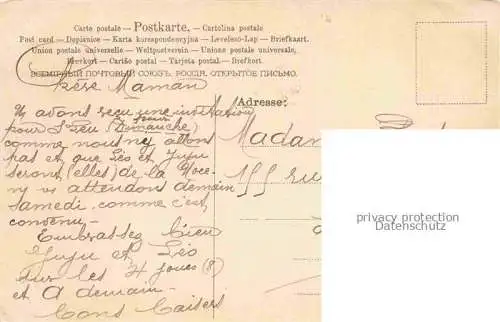 Carte postale – Postkarte. – Cartolina postale
Post card – Dopisnice – Karta korespondencyjna – Levelező-Lap – Briefkaart
Union postale universelle – Weltpostverein – Unione postale universale.
Brevkort – Cariño postal – Tarjeta postal – Brefkort.
ВСЕМІРНЫЙ ПОЧТОВЫЙ СОЮЗЪ. РОССІЯ. ОТКРЫТОЕ ПИСЬМО.
Chère Maman
Adresse:
Ny avons reçu une invitation
pour
pour (Dimanche)
comme nous ny allons
pas et que Léo et Juju
seront (elles) de la Noce
ny vs attendons demain
Samedi comme c'est
convenu –
Embrassez bien
Juju et Léo
sur les 4 joues (8)
et à demain –
Bons Baisers
Madam
55 ru
privacy protection
Datenschutz